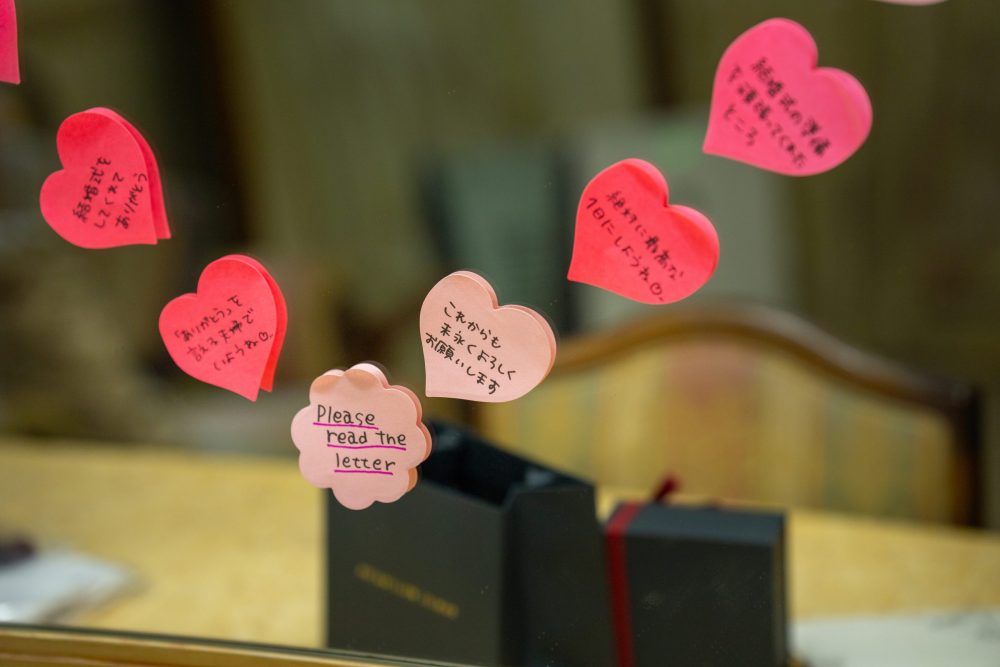 してくれて
ありがとう
「ありがとう」を
言える夫婦で
いようね♡
Please
read the
letter
これからも
末永くよろしく
お願いします
絶対に最高な
1日にしようね♡
結婚式の準備
を頑張ってくれた
ところ